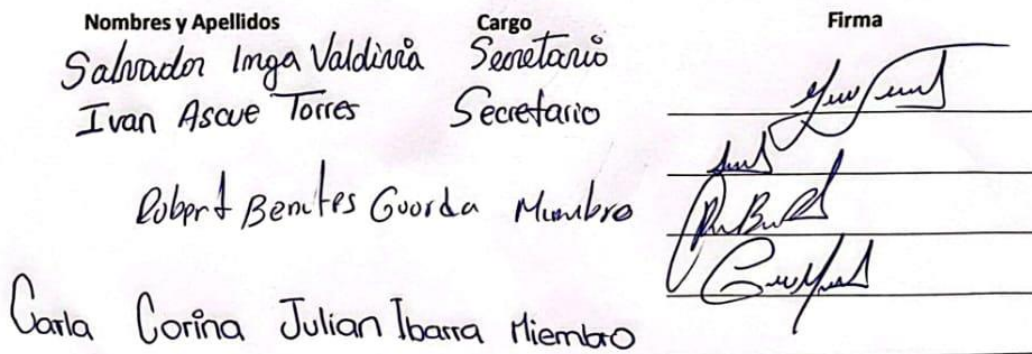 Nombres y Apellidos Cargo Firma
Salvador Inga Valdivia Secretario
Ivan Ascue Torres Secretario
Robert Benites Guorda Miembro
Carla Corina Julian Ibarra Miembro